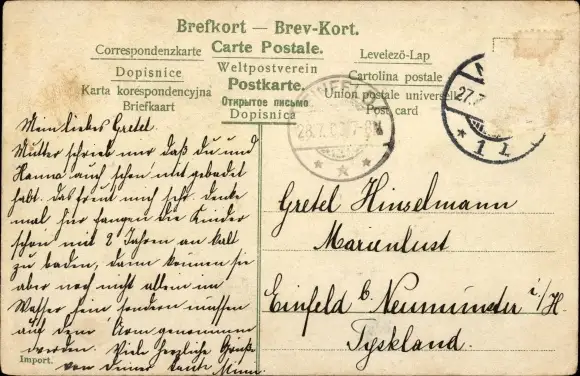 Brefkort — Brev-Kort.
Correspondenzkarte Carte Postale. Levelező-Lap
Dopisnice Weltpostverein Cartolina postale
Karta korespondencyjna Postkarte. Union postale universelle
Briefkaart Открытое письмо Post card
Dopisnica
27.7
1
28.7. 7-8
Mein liebes Gretel.
Mutter schrieb mir daß du und
Hanna auch schon mit gebadet
habt. das freut mich sehr. denke
mal hier fangen die Kinder
schon mit 2 Jahren an kalt
zu baden, dann können sie
aber noch nicht allein im
Wasser sein sondern müssen
auf dem Arm genommen
werden. Viele herzliche Grüße
von deiner Tante Minna.
Import.
Gretel Hinselmann
Marienlust
Einfeld b. Neumünster i/H.
Tyskland.